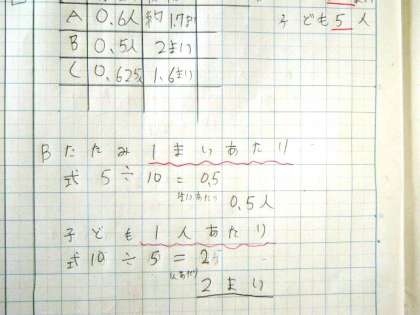 A 0.6人 約1.7まい
B 0.5人 2まい
C 0.625人 1.6まい
子ども5人
B たたみ1まいあたり
式 5÷10=0.5
0.5人
子ども1人あたり
式 10÷5=2
2まい